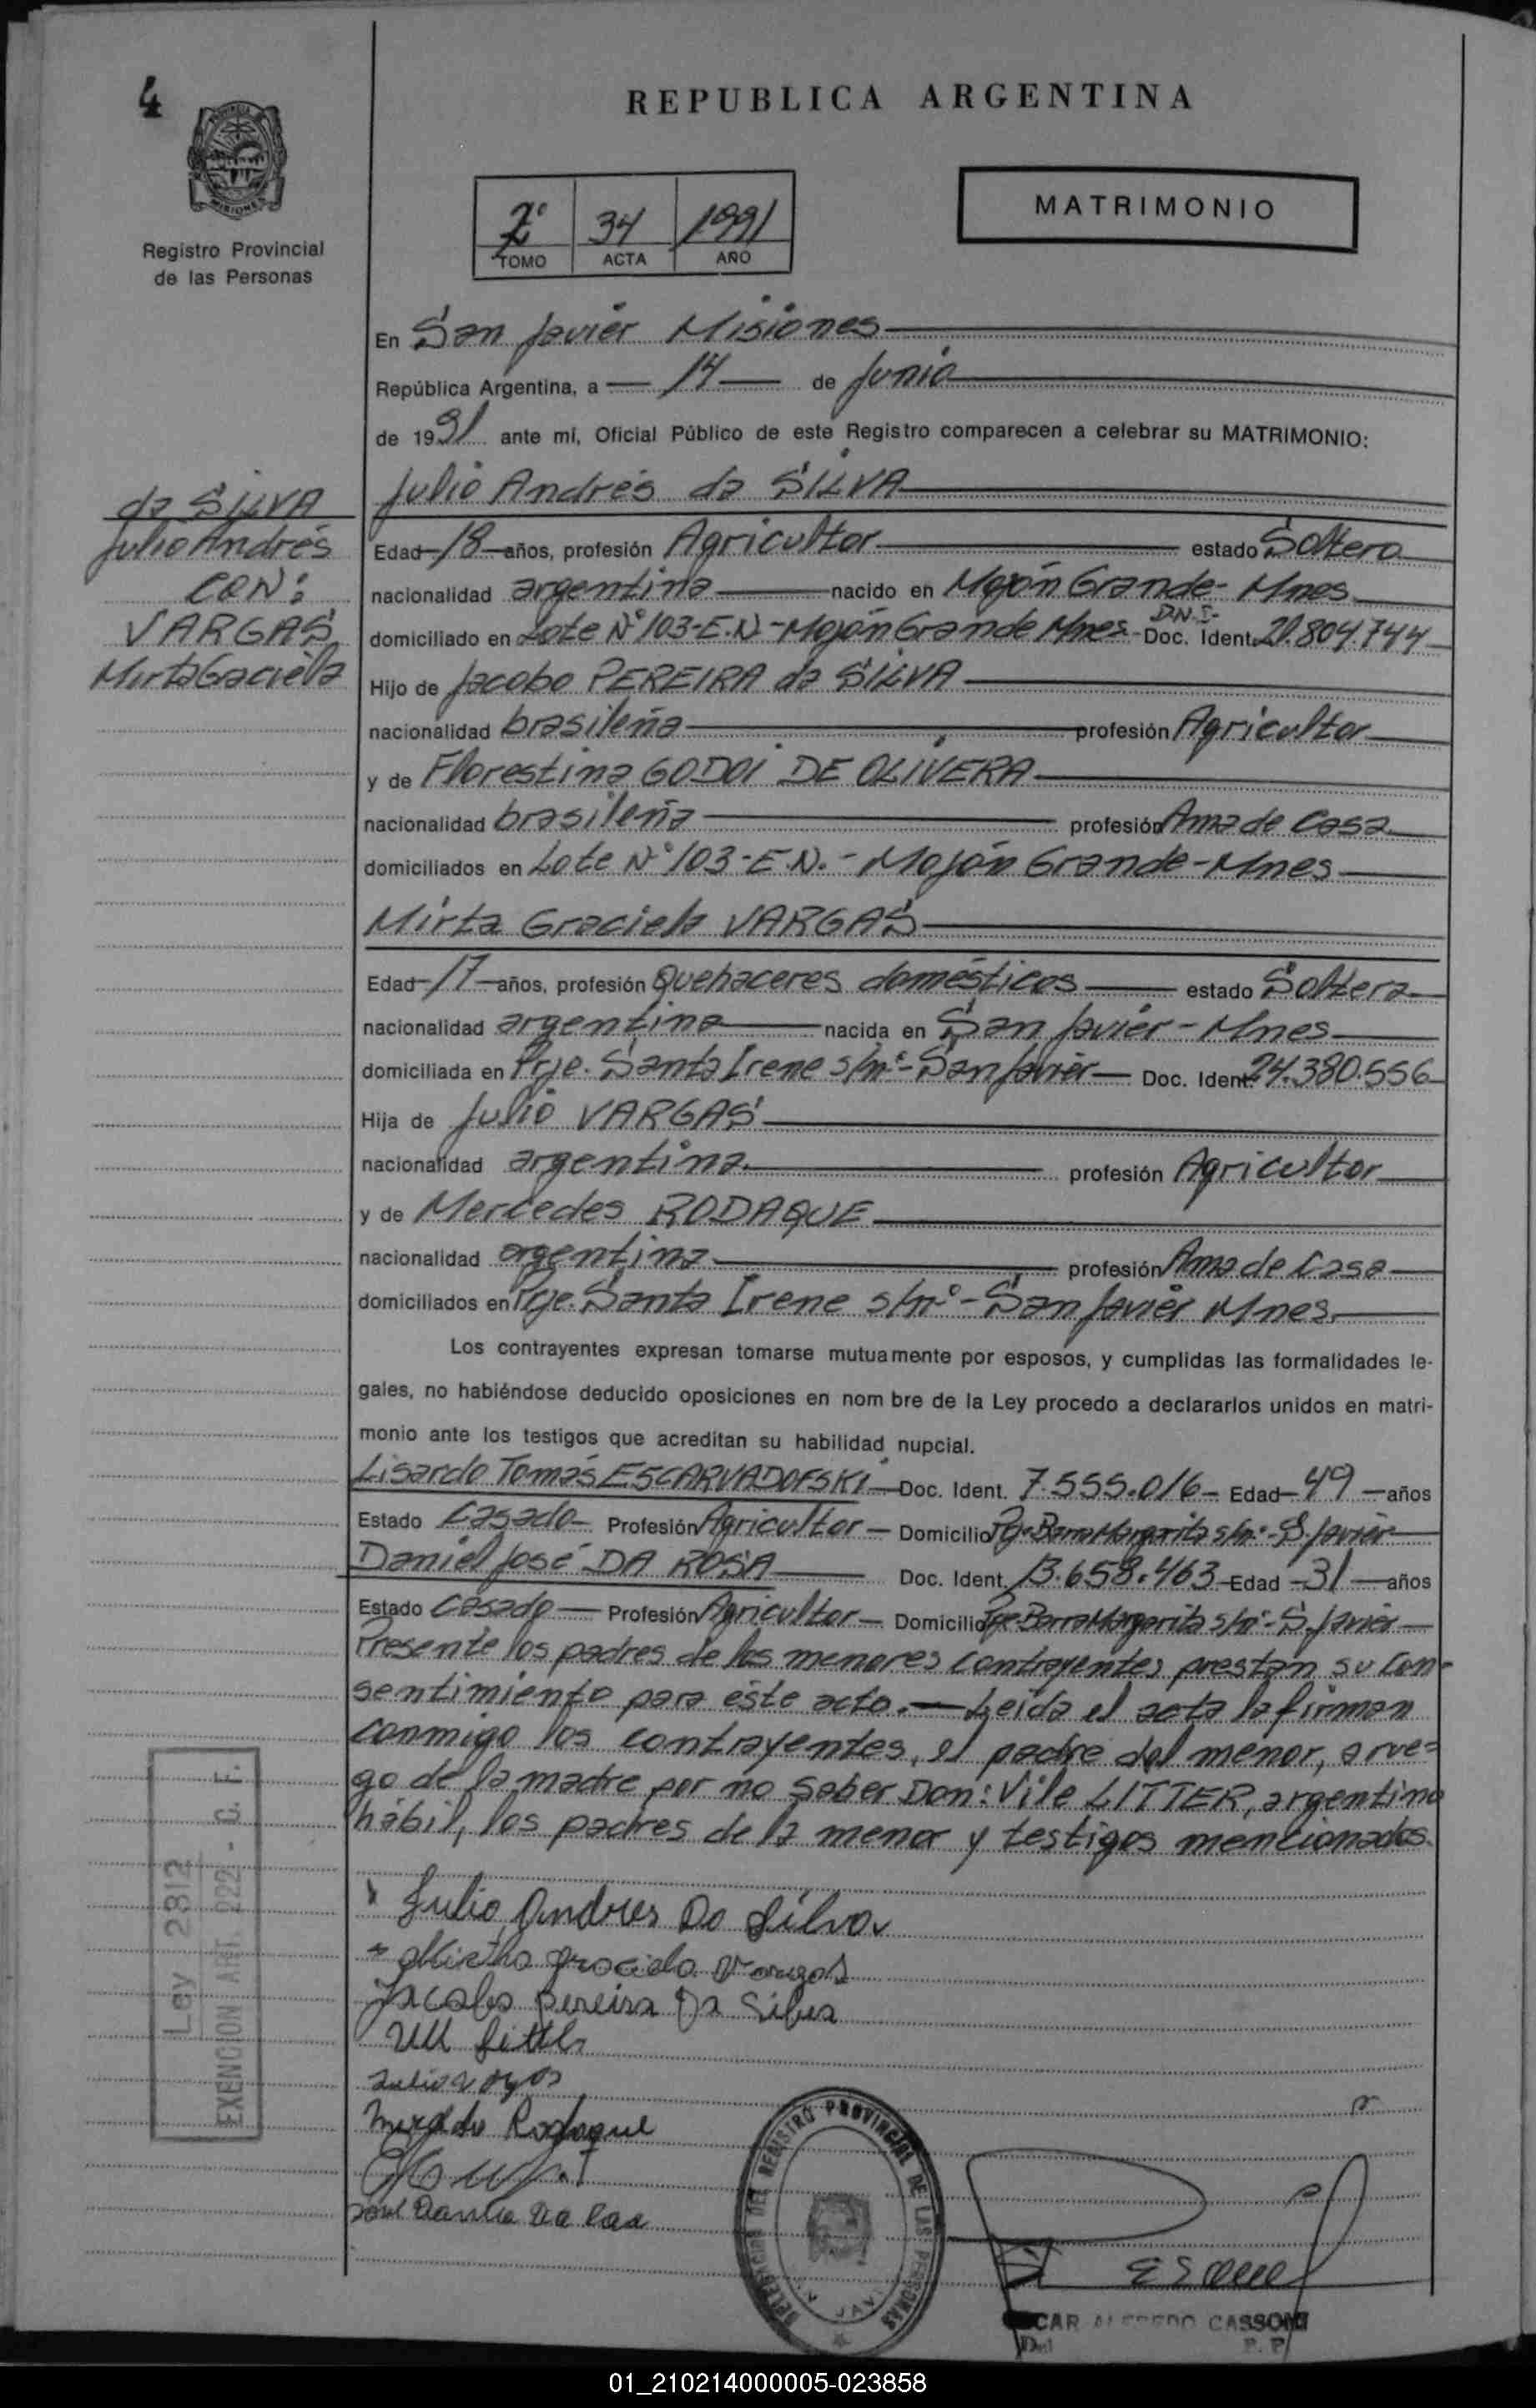 4
REPUBLICA ARGENTINA
MATRIMONIO
2º 34 1991
TOMO ACTA AÑO
MISIONES
Registro Provincial
de las Personas
En San Javier Misiones
República Argentina, a 14 de Junio
de 1991 ante mí, Oficial Público de este Registro comparecen a celebrar su MATRIMONIO:
da SILVA
Julio Andrés
CON:
VARGAS
Mirta Graciela
Julio Andrés da SILVA
Edad 18 años, profesión Agricultor estado Soltero
nacionalidad argentina nacido en Mojón Grande - Mnes
domiciliado en Lote Nº 103-E.N.- Mojón Grande Mnes - D.N.I. Doc. Ident. 20.804.744
Hijo de Jacobo PEREIRA da SILVA
nacionalidad brasileña profesión Agricultor
y de Florestina GODOI DE OLIVERA
nacionalidad brasileña profesión Ama de Casa
domiciliados en Lote Nº 103-E.N.- Mojón Grande - Mnes
Mirta Graciela VARGAS
Edad 17 años, profesión Quehaceres domésticos estado Soltera
nacionalidad argentina nacida en San Javier - Mnes
domiciliada en Prje. Santa Irene s/nº - San Javier Doc. Ident. 24.380.556
Hija de Julio VARGAS
nacionalidad argentina profesión Agricultor
y de Mercedes RODAQUE
nacionalidad argentina profesión Ama de Casa
domiciliados en Prje. Santa Irene s/nº - San Javier Mnes.
Los contrayentes expresan tomarse mutuamente por esposos, y cumplidas las formalidades le-
gales, no habiéndose deducido oposiciones en nom bre de la Ley procedo a declararlos unidos en matri-
monio ante los testigos que acreditan su habilidad nupcial.
Lisardo Tomás ESCARVADOFSKI Doc. Ident. 7.555.016 - Edad 49 años
Estado Casado - Profesión Agricultor - Domicilio Pje. Barra Margarita s/nº - S. Javier
Daniel José DA ROSA Doc. Ident. 13.658.463 - Edad 31 años
Estado Casado - Profesión Agricultor - Domicilio Pje. Barra Margarita s/nº - S. Javier
Presente los padres de los menores contrayentes prestan su con-
sentimiento para éste acto. - Leída el acta la firman
conmigo los contrayentes, el padre del menor, a rue-
go de la madre por no saber Don: Vile LITTER, argentino
hábil, los padres de la menor y testigos mencionados.
Julio Andres Da Silva
Mirtha Graciela Vargas
Jacobo Pereira Da Silva
Julio Vargas
Rodaque
Ley 2812
EXENCION ART. 222 - C. F.
DELEGACION DEL REGISTRO PROVINCIAL DE LAS PERSONAS
CAR ALFREDO CASSONI
01_210214000005-023858